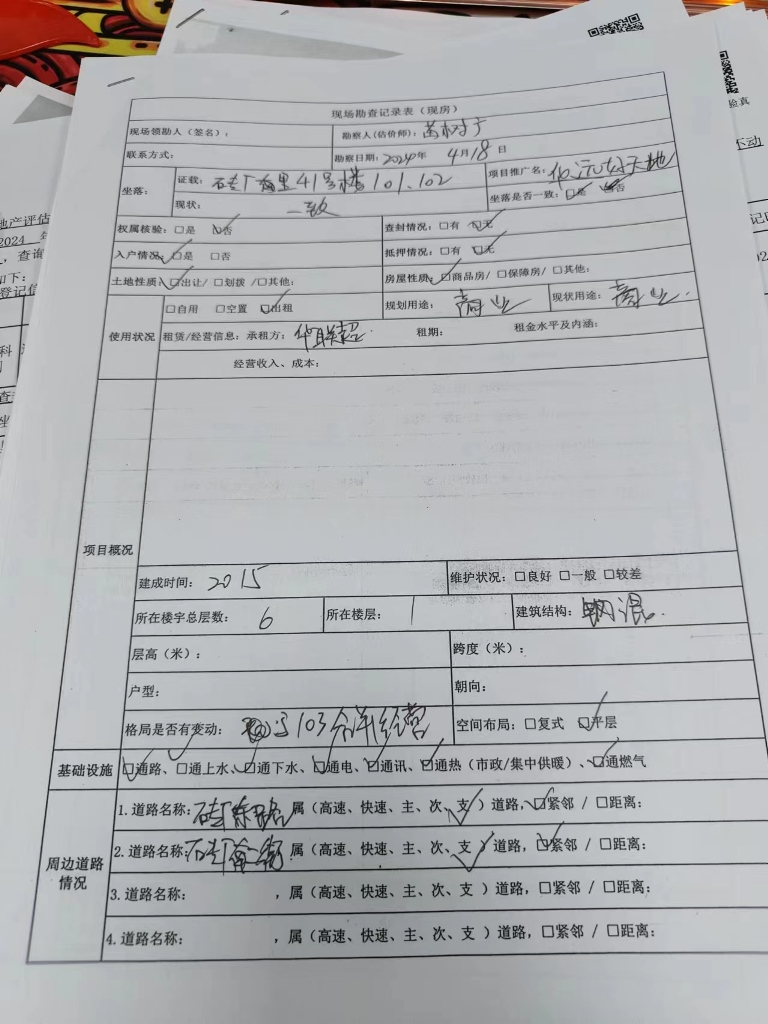 验真
不动
地产评估
2024 年
，查询
如下：
登记信
科
查
坐
记日
现场勘查记录表（现房）
现场领勘人（签名）：
勘察人(估价师)：
联系方式：
勘察日期：2024年 4月18日
坐落：
证载：砖厂南里41号楼101、102
项目推广名：华远好天地
现状：一致
坐落是否一致：□是 ☑否
权属核验：□是 ☑否
查封情况：□有 ☑无
入户情况：☑是 □否
抵押情况：□有 ☑无
土地性质：☑出让/□划拨 /□其他：
房屋性质：☑商品房/□保障房/□其他：
使用状况
□自用 □空置 ☑出租
规划用途：商业
现状用途：商业
租赁/经营信息：承租方：华联超 租期： 租金水平及内涵：
经营收入、成本：
项目概况
建成时间：2015
维护状况：□良好 □一般 □较差
所在楼宇总层数：6
所在楼层：1
建筑结构：钢混
层高（米）：
跨度（米）：
户型：
朝向：
格局是否有变动：与103合并经营
空间布局：□复式 ☑平层
基础设施
☑通路、☑通上水、☑通下水、☑通电、☑通讯、☑通热（市政/集中供暖）、☑通燃气
周边道路情况
1.道路名称：砖厂东路 属（高速、快速、主、次、支✓）道路，☑紧邻 / □距离：
2.道路名称：砖厂南街 属（高速、快速、主、次、支✓）道路，☑紧邻 / □距离：
3.道路名称： ，属（高速、快速、主、次、支 ）道路，□紧邻 / □距离：
4.道路名称： ，属（高速、快速、主、次、支 ）道路，□紧邻 / □距离：